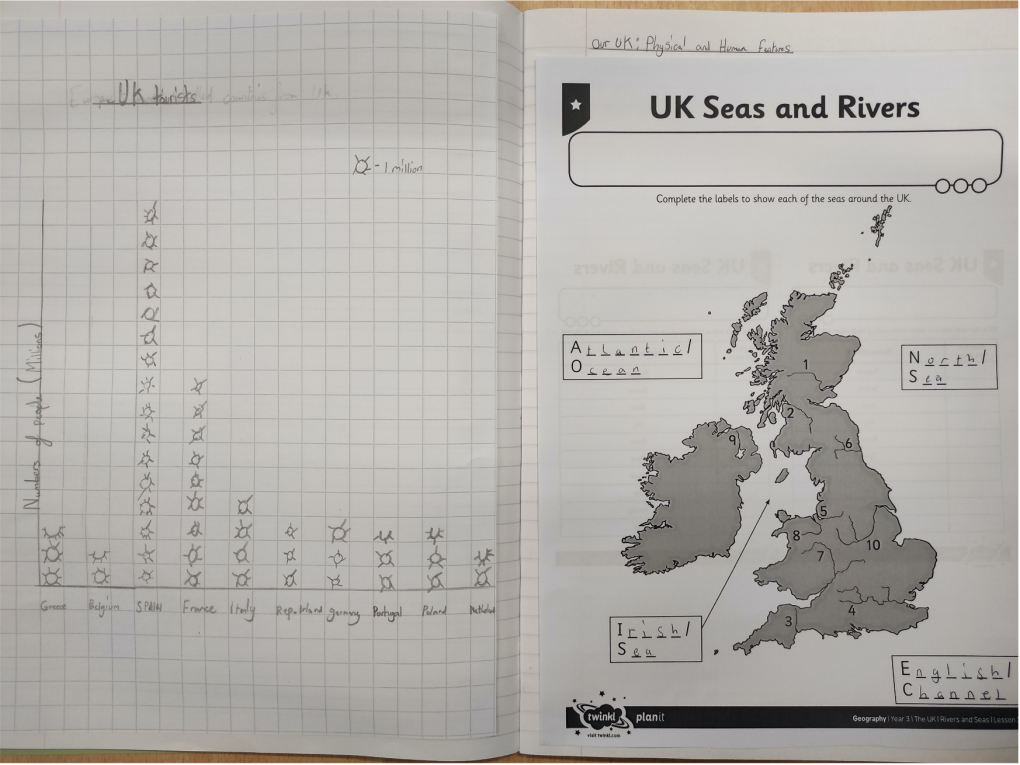 UK tourists
- 1 million
Numbers of people (Millions)
Greece
Belgium
SPAIN
France
Italy
Rep Ireland
germany
Portugal
Poland
Our UK: Physical and Human features
UK Seas and Rivers
Complete the labels to show each of the seas around the UK.
Atlantic/
Ocean
North/
Sea
1
2
9
6
5
8
7
10
3
4
Irish/
Sea
English/
Channel
twinkl
planit
visit twinkl.com
Geography | Year 3 | The UK | Rivers and Seas | Lesson